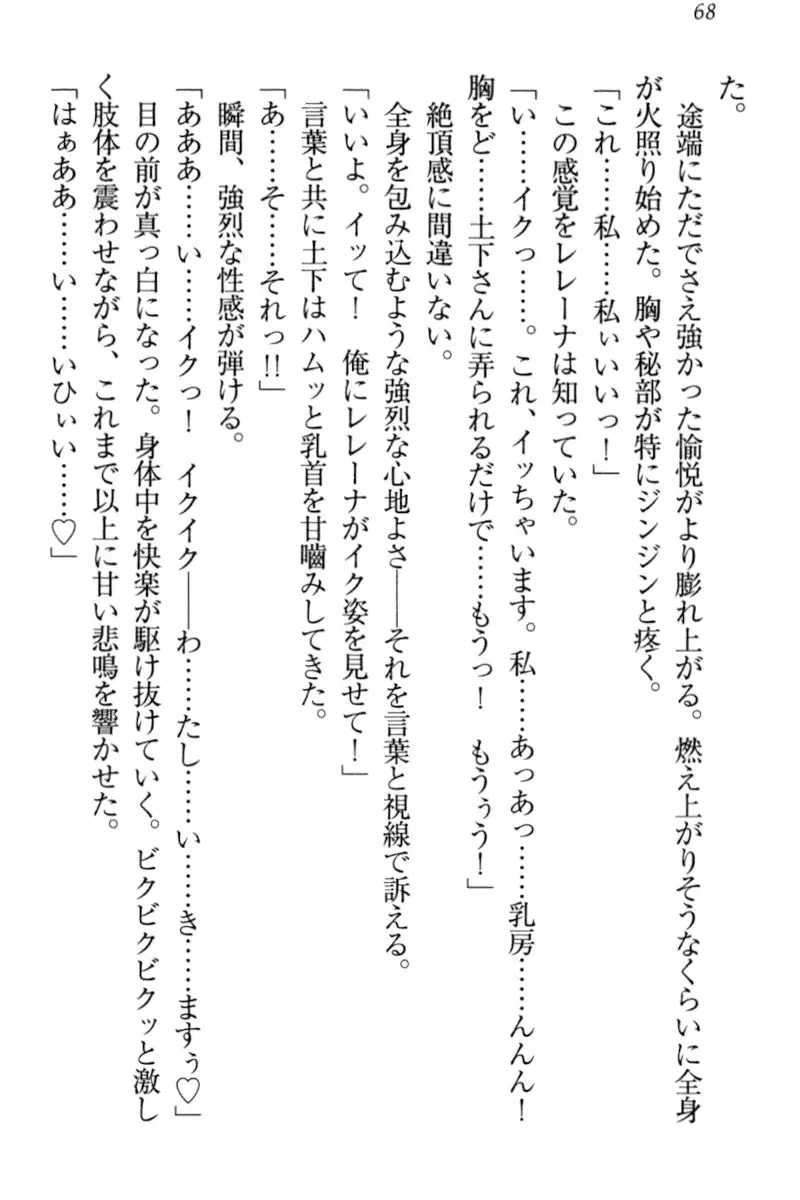 68
た。
　途端にただでさえ強かった愉悦がより膨れ上がる。燃え上がりそうなくらいに全身
が火照り始めた。胸や秘部が特にジンジンと疼く。
「これ……私……私ぃいいっ！」
　この感覚をレレーナは知っていた。
「い……イクっ……。これ、イッちゃいます。私……あっあっ……乳房……んんん！
胸をど……土下さんに弄られるだけで……もうっ！　もうぅう！」
　絶頂感に間違いない。
　全身を包み込むような強烈な心地よさ――それを言葉と視線で訴える。
「いいよ。イッて！　俺にレレーナがイク姿を見せて！」
　言葉と共に土下はハムッと乳首を甘嚙みしてきた。
「あ……そ……それっ!!」
　瞬間、強烈な性感が弾ける。
「あああ……い……イクっ！　イクイク――わ……たし……い……き……ますぅ♡」
　目の前が真っ白になった。身体中を快楽が駆け抜けていく。ビクビクビクッと激し
く肢体を震わせながら、これまで以上に甘い悲鳴を響かせた。
「はぁああ……い……いひぃい……♡」